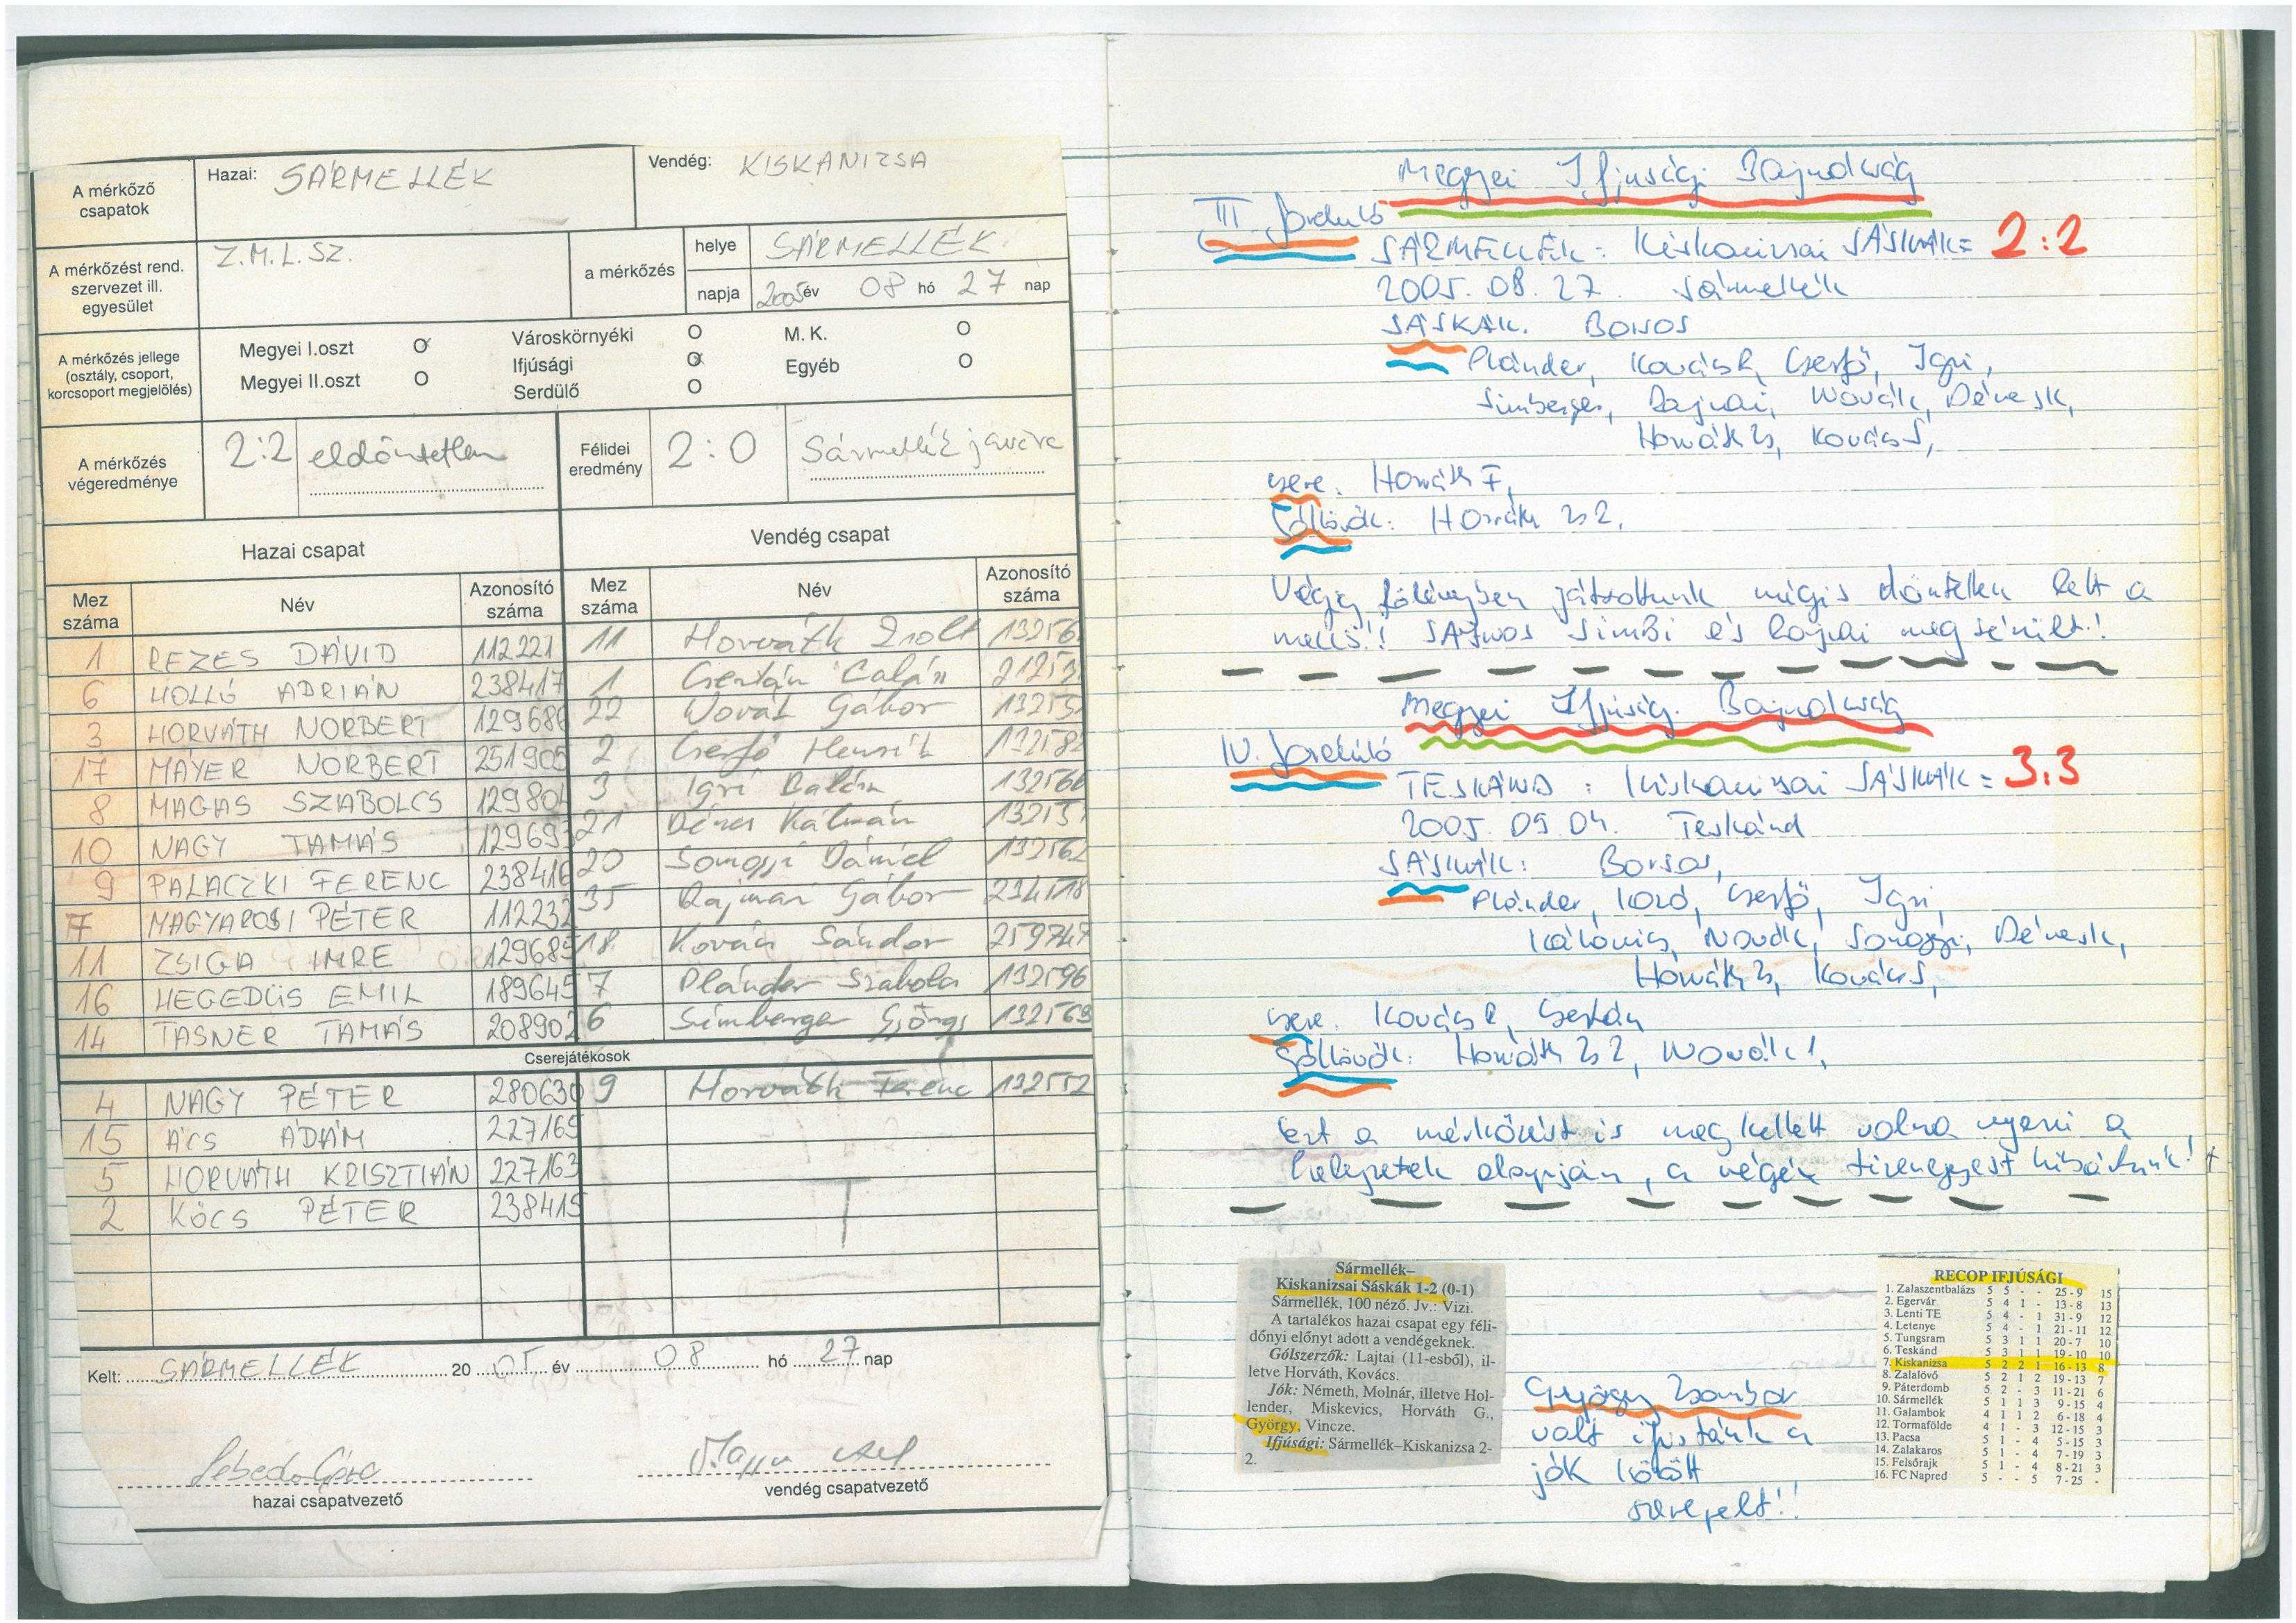 A mérkőző csapatok
Hazai: SÁRMELLÉK
Vendég: KISKANIZSA
A mérkőzést rend. szervezet ill. egyesület
Z.M.L.SZ.
a mérkőzés
helye SÁRMELLÉK
napja 2005 év 08 hó 27 nap
A mérkőzés jellege (osztály, csoport, korcsoport megjelölés)
Megyei I.oszt O Városkörnyéki O M. K. O
Ifjúsági O Egyéb O
Megyei II.oszt O Serdülő O
A mérkőzés végeredménye
2:2 eldöntetlen
Félidei eredmény
2:0 Sármellék javára
Hazai csapat Vendég csapat
Mez száma Név Azonosító száma Mez száma Név Azonosító száma
1 REZES DÁVID 112221 11 Horváth Zsolt 13256
6 HOLLÓ ADRIÁN 238417 1 Csertán Balázs 21253
3 HORVÁTH NORBERT 129686 22 Novák Gábor 13255
17 MAYER NORBERT 251905 2 Cserfő Henrik 132582
8 MAGAS SZABOLCS 129804 3 Igri Balázs 132566
10 NAGY TAMÁS 129693 21 Dénes Kálmán 13251
9 PALACZKI FERENC 238416 20 Somogyi Dániel 132562
7 MAGYAROSI PÉTER 112232 35 Rajnai Gábor 234578
11 ZSIGA IMRE 129685 18 Kovács Sándor 259747
16 HEGEDŰS EMIL 189645 7 Plánder Szabolcs 132596
14 TASNER TAMÁS 208902 6 Simberger György 132569
Cserejátékosok
4 NAGY PÉTER 280630 9 Horváth Ferenc 132552
15 ÁCS ÁDÁM 227165
5 HORVÁTH KRISZTIÁN 227163
2 KÓCS PÉTER 238415
Kelt: SÁRMELLÉK 20 05 év 08 hó 27 nap
hazai csapatvezető
vendég csapatvezető
Megyei Ifjúsági Bajnokság
III. forduló
SÁRMELLÉK : Kiskanizsai SÁSKÁK = 2:2
2005. 08. 27. Sármellék
SÁSKÁK. Borsos
Plánder, Kovács R, Cserfő, Igri,
Simberger, Rajnai, Novák, Dénes K,
Horváth Zs, Kovács S,
csere. Horváth F,
Góllövők: Horváth Zs 2,
Végig fölényben játszottunk mégis döntetlen lett a
meccs!! SAJNOS SIMBI és Rajnai megsérült!!
Megyei Ifjúsági Bajnokság
IV. forduló
TESKÁND : Kiskanizsai SÁSKÁK = 3:3
2005. 09. 04. Teskánd
SÁSKÁK: Borsos,
Plánder, Cserfő, Igri,
Kálovics, Novák, Somogyi, Dénes K,
Horváth Zs, Kovács S,
csere. Kovács R, Csertán
Góllövők: Horváth Zs 2, Novák 1,
Ezt a mérkőzést is meg kellett volna nyerni a
helyzetek alapján, a végén tizenegyest hibáztunk!!
Sármellék–
Kiskanizsai Sáskák 1-2 (0-1)
Sármellék, 100 néző. Jv.: Vizi.
A tartalékos hazai csapat egy féli-
dőnyi előnyt adott a vendégeknek.
Gólszerzők: Lajtai (11-esből), il-
letve Horváth, Kovács.
Jók: Németh, Molnár, illetve Hol-
lender, Miskevics, Horváth G.,
György, Vincze.
Ifjúsági: Sármellék–Kiskanizsa 2-
2.
György Zsombor
volt ifistánk a
jók között
szerepelt!!
RECOP IFJÚSÁGI
1. Zalaszentbalázs 5 5 - - 25-9 15
2. Egervár 5 4 1 - 13-8 13
3. Lenti TE 5 4 - 1 31-9 12
4. Letenye 5 4 - 1 21-11 12
5. Tungsram 5 3 1 1 20-7 10
6. Teskánd 5 3 1 1 19-10 10
7. Kiskanizsa 5 2 2 1 16-13 8
8. Zalalövő 5 2 1 2 19-13 7
9. Páterdomb 5 2 - 3 11-21 6
10. Sármellék 5 1 1 3 9-15 4
11. Galambok 4 1 1 2 6-18 4
12. Tormafölde 4 1 - 3 12-15 3
13. Pacsa 5 1 - 4 5-15 3
14. Zalakaros 5 1 - 4 7-19 3
15. Felsőrajk 5 1 - 4 8-21 3
16. FC Napred 5 - - 5 7-25 -